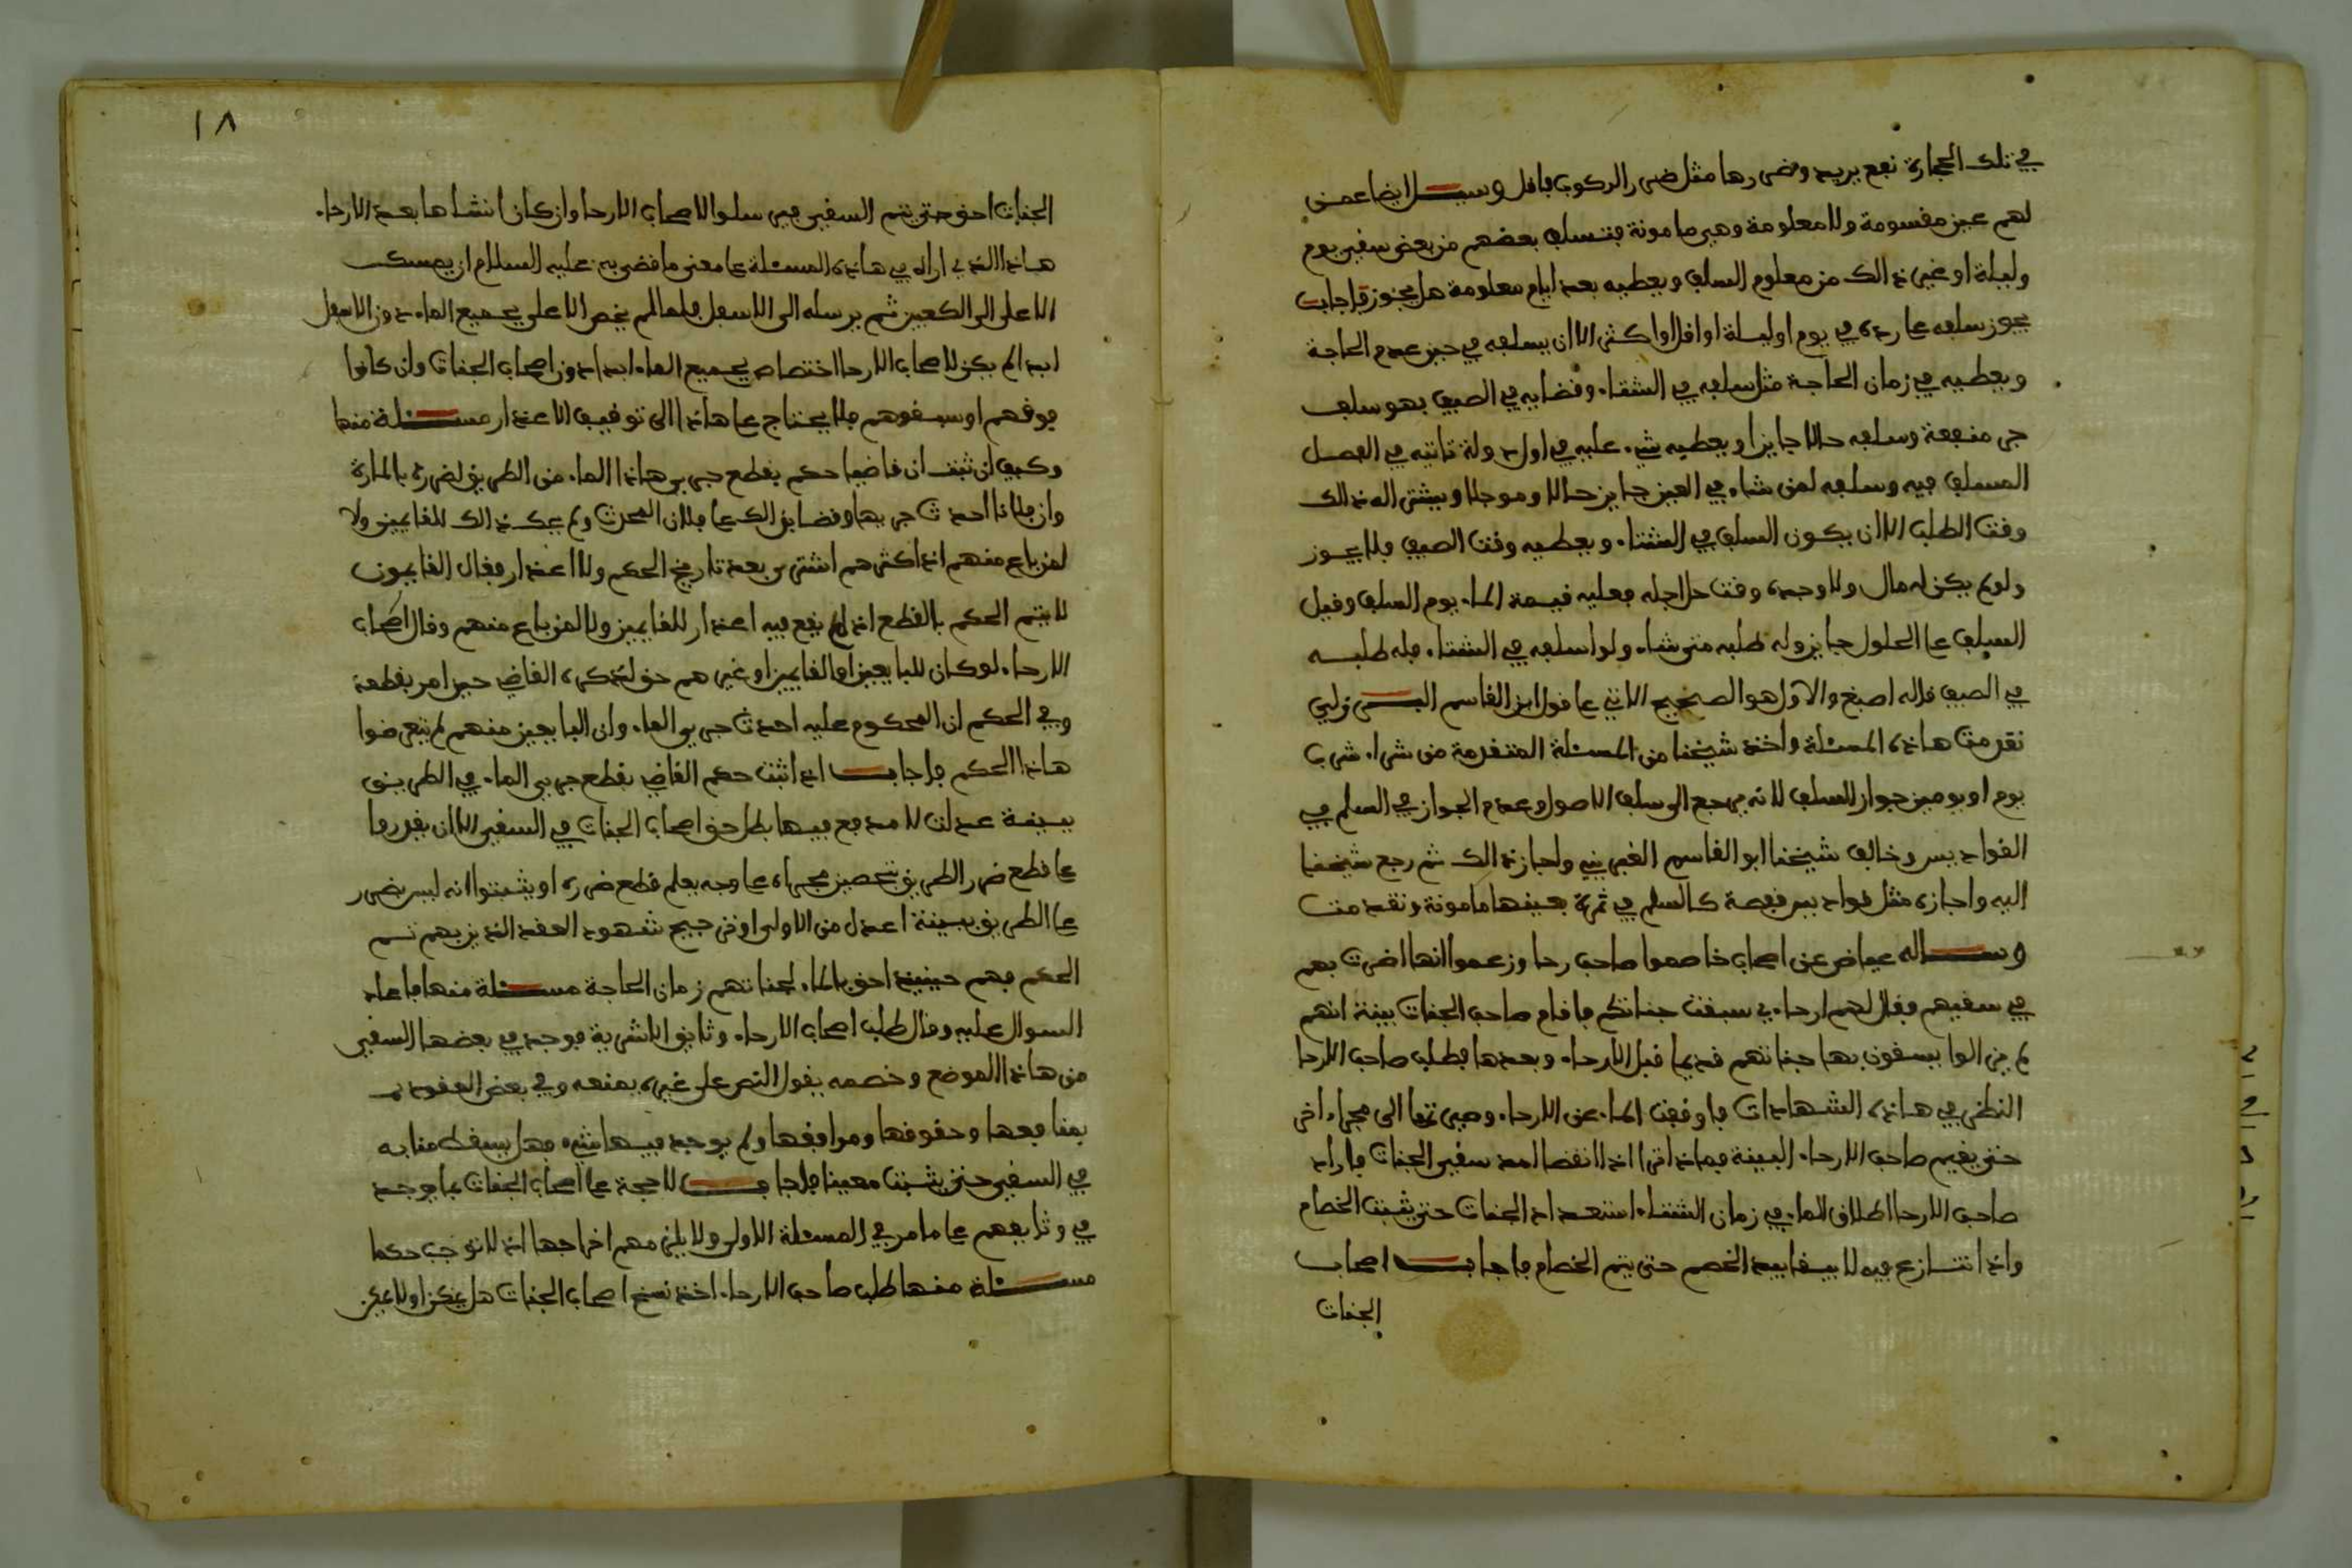 في تلك الحجارة نفع يريد وضررها مثل ضرر الركوب فاقل وسئل ايضا عمن
لهم عين مقسومة ولا معلومة وهي مامونة فتسلف بعضهم من بعض سقي يوم
وليلة او غير ذالك من معلوم السلف ويعطيه بعد ايام معلومة هل يجوز فاجاب
يجوز سلفه على رده في يوم او ليلة او اقل او اكثر الا ان يسلفه في حين عدم الحاجة
ويعطيه في زمان الحاجة مثل سلفه في الشتاء وقضايه في الصيف فهو سلف
جر منفعة وسلفه حالا جايز او يعطيه شيء عليه في اول دولة تاتيه في الفصل
المسلف فيه وسلفه لمن شاء في العين جايز حالا وموجلا ويشترا له ذالك
وقت الطلب الا ان يكون السلف في الشتاء ويعطيه وقت الصيف فلا يجوز
ولو لم يكن له مال ولا وجده وقت حل اجله فعليه قيمة الماء يوم السلف وقيل
السلف على الحلول جايز وله طلبه متى شاء ولو اسلفه في الشتاء فله طلبه
في الصيف قاله اصبغ والاول هو الصحيح الاتي على قول ابن القاسم البرزلي
تقدمت هاذه المسئلة واخذ شيخنا من المسئلة المتقدمة من شراء شرب
يوم او يومين جواز السلف لانه يرجع الى سلف الاصول وعدم الجواز في السلم في
القواديس وخالف شيخنا ابو القاسم الغبريني واجاز ذالك ثم رجع شيخنا
اليه واجازه مثل قواديس قفصة كالسلم في ثمرة بعينها مامونة وتقدمت
وسئل عياض عن اصحاب خاصموا صاحب رحا وزعموا انها اضرت بهم
في سقيهم فقال لهم ارحاءي سبقت جناتكم فاقام صاحب الجنات بينة انهم
لم يزالوا يسقون بها جناتهم قديما قبل الارحاء وبعدها فطلب صاحب الارحا
النظر في هاذه الشهادات فاوقف الماء عن الارحاء وصرفتها الى مجراه اخر
حتى يقيم صاحب الارحاء البينة فماذا ترا اذا انقضا امد سقي الجنات فاراد
صاحب الارحا اطلاق الماء في زمان الشتاء استعداد الجنات حتى يثبت الخصام
واذا تنازع فيه لا يبقا بيد الخصم حتى يتم الخصام فاجاب اصحاب
الجنات
١٨
الجنات احق حتى يتم السقي فيرسلوا لاصحاب الارحا وان كان انشاها بعد الارحاء
هاذا الذي اراه في هاذه المسئلة على معنى ما قضى به عليه السلام ان يمسك
الاعلى الى الكعبين ثم يرسله الى الاسفل فلما لم يخص الاعلى بجميع الماء دون الاسفل
ابدا لم يكن لاصحاب الارحا اختصاص بجميع الماء ابدا دون اصحاب الجنات وان كانوا
فوقهم او سبقوهم فلا يحتاج على هاذا الى توقيف الاعذار مسئلة منها
وكيف ان ثبت ان قاضيا حكم بقطع جري هاذا الماء من الطريق لضرره بالمارة
وان فلانا احدث جريها وقضا بذالك على فلان المحدث ولم يحك ذالك للقايمين ولا
لمن باع منهم اذ اكثرهم اشترى بعد تاريخ الحكم ولا اعذار فقال القايمون
لا يتم الحكم بالقطع اذ لم يقع فيه اعذار للقايمين ولا لمن باع منهم وقال اصحاب
الارحاء لو كان للبايعين او القايمين او غيرهم حق لذكره القاضي حين امر بقطعه
وفي الحكم ان المحكوم عليه احدث جري الماء وان البايعين منهم لم يتعرضوا
هاذا الحكم فاجاب اذا ثبت حكم القاضي بقطع جري الماء في الطريق
ببينة عدلت لا مدفع فيها بطل حق اصحاب الجنات في السقي الا ان يقدروا
على قطع ضرر الطريق بتحصين مجراه على وجه يعلم قطع ضرره او يثبتوا انه ليس بضرر
على الطريق ببينة اعدل من الاولى او من جرح شهود العقد الذين بهم تم
الحكم فهم حينيذ احق بالماء لجناتهم زمان الحاجة مسئلة منها فاعاد
السوال عليه وقال طلب اصحاب الارحاء وثايق الاشرية فوجد في بعضها السقي
من هاذا الموضع وخصمه يقول النص على غيره يمنعه وفي بعض العقود
بمنافعها وحقوقها ومرافقها ولم يوجد فيها شيء فهل يسقط منابه
في السقي حتى يثبت معينا فاجاب لا حجة على اصحاب الجنات بما يوجد
في وثايقهم على ما مر في المسئلة الاولى ولا يلزمهم اخراجها اذ لا توجب حكما
مسئلة منها طلب صاحب الارحاء اخذ نسخ اصحاب الجنات هل يمكن او لا يمكن